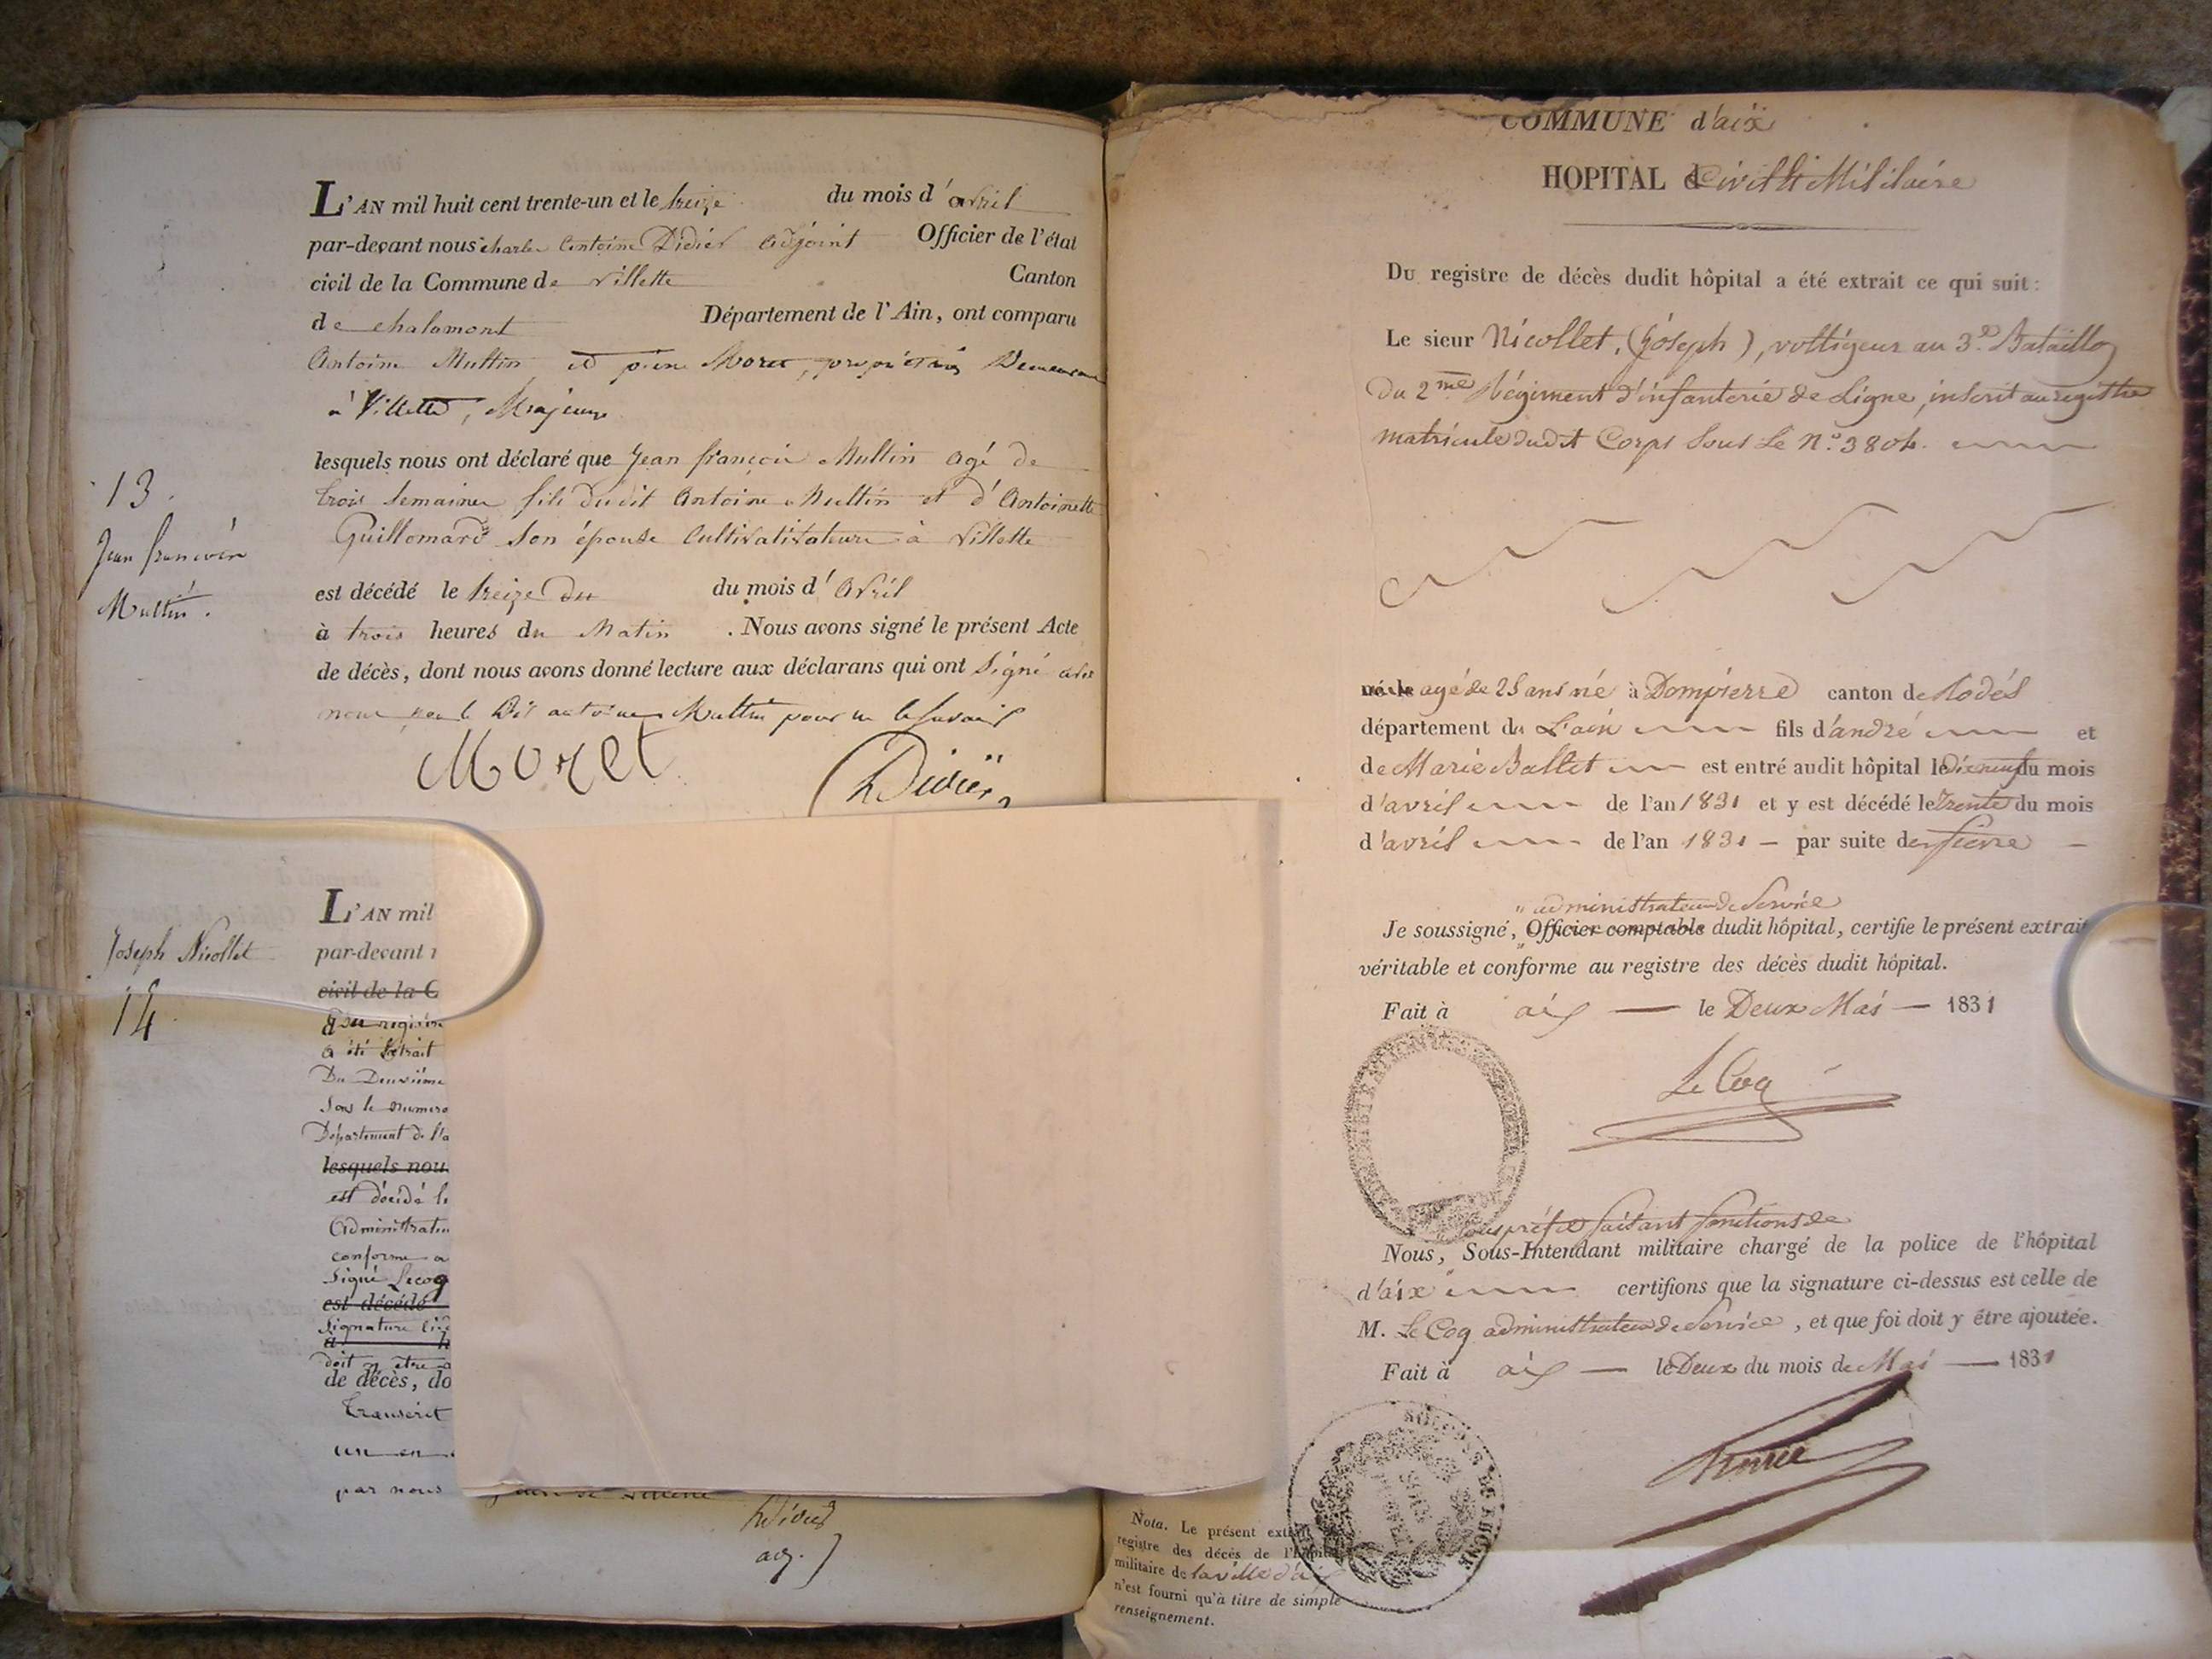 L'AN mil huit cent trente-un et le treize du mois d'avril
par-devant nous charles antoine Didier adjoint Officier de l'état
civil de la Commune de villette Canton
de chalamont Département de l'Ain, ont comparu
Antoine Multin et pierre Moret, propriétaires Demeurant
à Villette, Majeurs
lesquels nous ont déclaré que Jean françois Multin agé de
trois semaines fils dudit Antoine Multin et d'Antoinette
Guillomard son épouse cultivativateurs à villette
est décédé le treize du du mois d'avril
à trois heures du Matin . Nous avons signé le présent Acte
de décès, dont nous avons donné lecture aux déclarans qui ont signé avec
nous le dit antoine Multin pour ne le savoir
Moret
Didier
13
Jean francois
Multin.
Joseph Nicollet
14
L'AN mil
par-devant n
civil de la C
du registre
a été extrait
Du Deuxième
Sous le numero
Département de l'a
lesquels nou
est décédé le
Administrateu
conforme a
Signé Lecoq
est décédé
Signature ci-d
à h
doit y être a
de décès, do
Transcrit
un en
par nous
Didier
adj.
COMMUNE d'aix
HOPITAL Civil & Militaire
Du registre de décès dudit hôpital a été extrait ce qui suit:
Le sieur Nicollet, (joseph), voltigeur au 3e. Bataillon
Du 2me Régiment d'infanterie de Ligne, inscrit au registre
matricule dudit Corps sous le N.o 3804.
né le agé de 25 ans né à Dompierre canton de Rodés
département de L'ain fils d'andré et
de Marie Ballet est entré audit hôpital le Dixneuf du mois
d'avril de l'an 1831 et y est décédé le Trente du mois
d'avril de l'an 1831 — par suite de fievre —
administrateur de Service
Je soussigné, Officier comptable dudit hôpital, certifie le présent extrait
véritable et conforme au registre des décès dudit hôpital.
Fait à aix — le Deux Mai — 1831
Le Coq
Sous préfet faisant fonctions de
Nous, Sous-Intendant militaire chargé de la police de l'hôpital
d'aix certifions que la signature ci-dessus est celle de
M. Le Coq administrateur de Service, et que foi doit y être ajoutée.
Fait à aix — le Deux du mois de Mai — 1831
Nota. Le présent extrait
registre des décès de l'hôpital
militaire de la ville d'aix
n'est fourni qu'à titre de simple
renseignement.